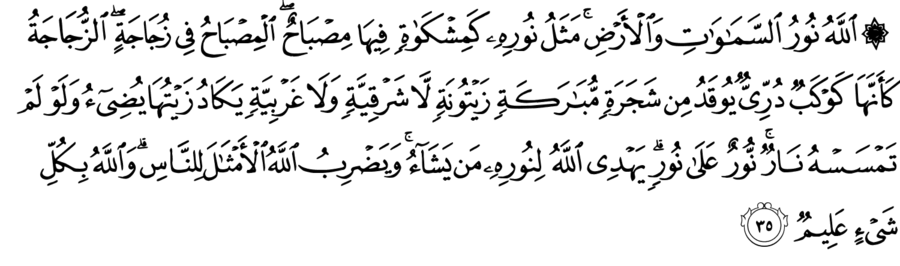 ۞ ٱللَّهُ نُورُ ٱلسَّمَـٰوَٰتِ وَٱلْأَرْضِ ۚ مَثَلُ نُورِهِۦ كَمِشْكَوٰةٍ فِيهَا مِصْبَاحٌ ۖ ٱلْمِصْبَاحُ فِى زُجَاجَةٍ ۖ ٱلزُّجَاجَةُ
كَأَنَّهَا كَوْكَبٌ دُرِّىٌّ يُوقَدُ مِن شَجَرَةٍ مُّبَـٰرَكَةٍ زَيْتُونَةٍ لَّا شَرْقِيَّةٍ وَلَا غَرْبِيَّةٍ يَكَادُ زَيْتُهَا يُضِىٓءُ وَلَوْ لَمْ
تَمْسَسْهُ نَارٌ ۚ نُّورٌ عَلَىٰ نُورٍ ۗ يَهْدِى ٱللَّهُ لِنُورِهِۦ مَن يَشَآءُ ۚ وَيَضْرِبُ ٱللَّهُ ٱلْأَمْثَـٰلَ لِلنَّاسِ ۗ وَٱللَّهُ بِكُلِّ
شَىْءٍ عَلِيمٌ ۝٣٥